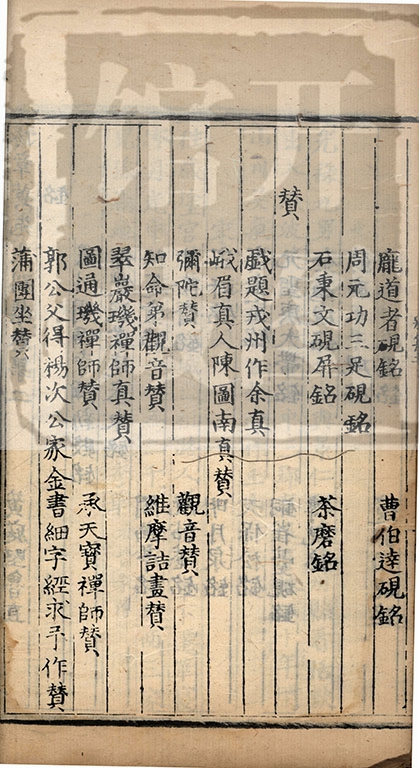 龐道者硯銘 曹伯達硯銘
周元功三足硯銘
石秉文硯屏銘 茶磨銘
贊
戱題戎州作余真
峨眉真人陳圖南真贊
彌陀贊 觀音贊
知命弟觀音贊 維摩詰畫贊
翠巖璣禪師真贊
圓通璣禪師贊 承天寶禪師贊
郭公父得楊次公家金書細字經求予作贊
蒲團坐贊